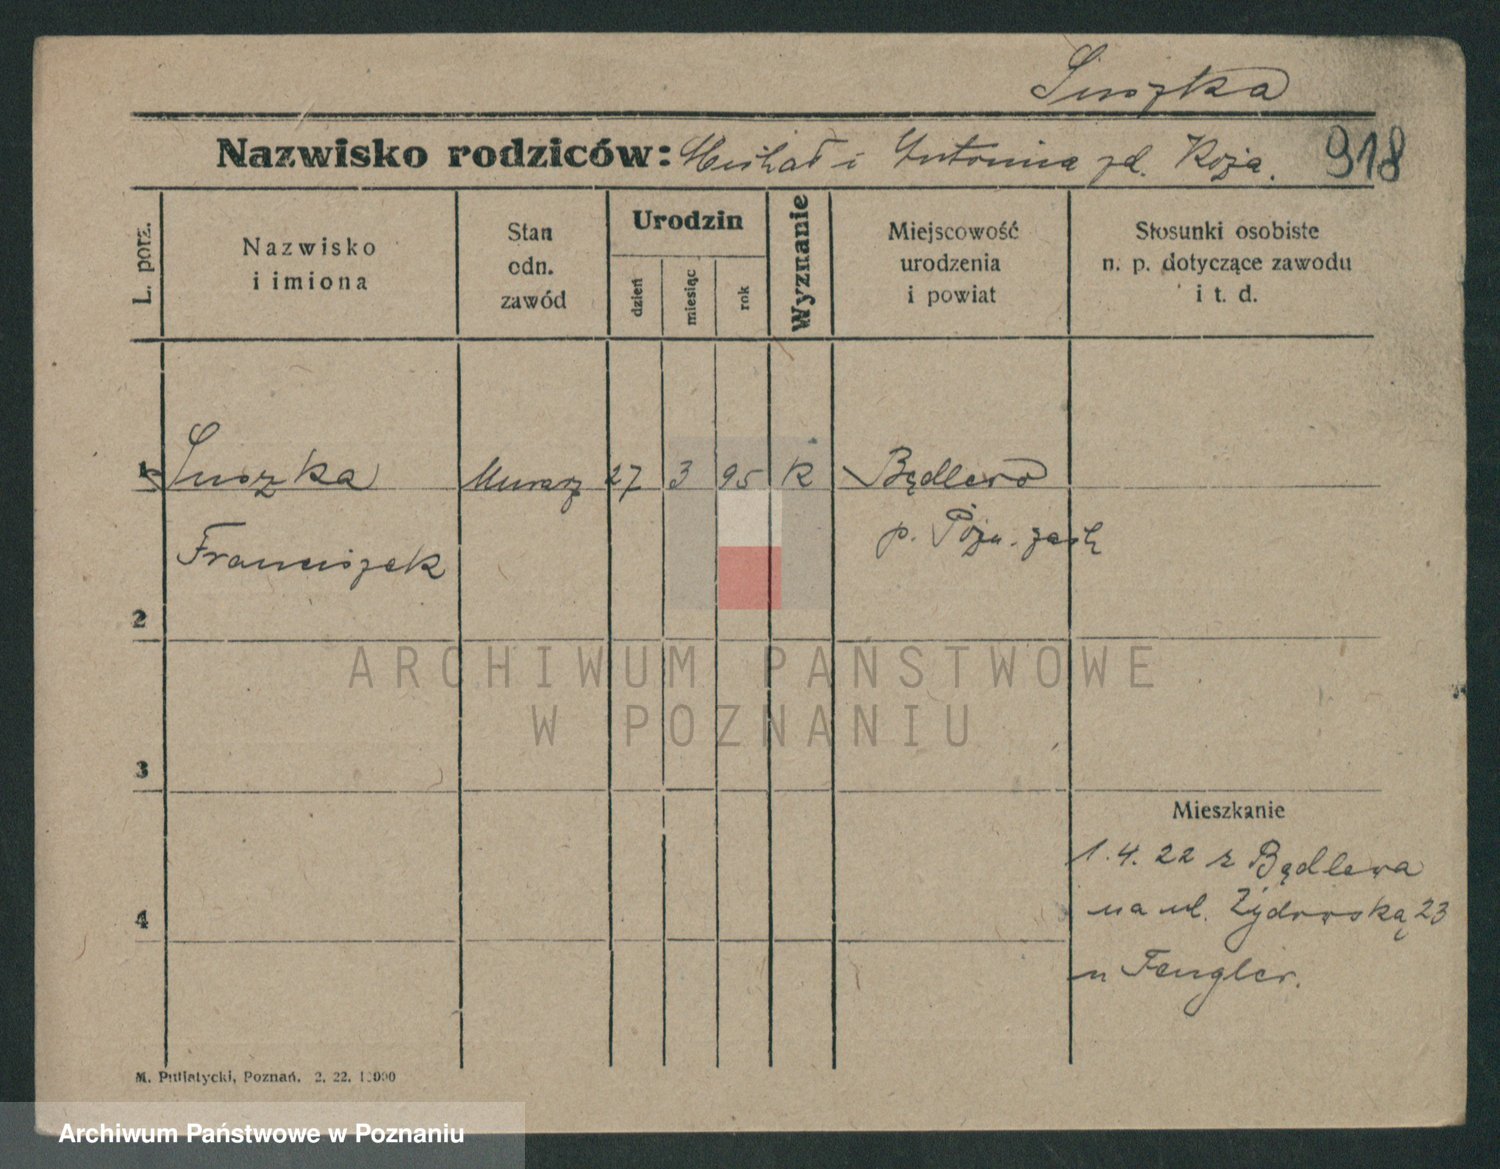 Suszka
Nazwisko rodziców: Michał i Antonina zd. Koza. 918
L. porz.
Nazwisko
i imiona
Stan
odn.
zawód
Urodzin
dzień
miesiąc
rok
Wyznanie
Miejscowość
urodzenia
i powiat
Stosunki osobiste
n. p. dotyczące zawodu
i t. d.
1 Suszka Murarz 27 3 95 K Będlewo
Franciszek p. Pozn. zach
2
ARCHIWUM PAŃSTWOWE
W POZNANIU
3
Mieszkanie
1.4.22 z Będlewa
na ul. Żydowską 23
4
u Fengler.
M. Putiatycki, Poznań. 2. 22. 10000
Archiwum Państwowe w Poznaniu